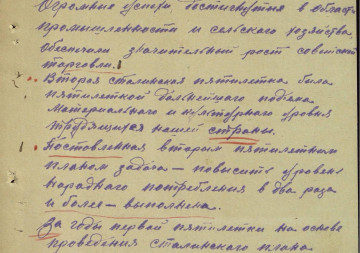 Огромные успехи достигнутые в области
промышленности и сельского хозяйства,
обеспечили значительный рост советской
торговли.
Вторая сталинская пятилетка была
пятилеткой дальнейшего подъема
материального и культурного уровня
трудящихся нашей страны.
Поставленная вторым пятилетним
планом задача – повысить уровень
народного потребления в два раза
и более – выполнена.
За годы первой пятилетки на основе
проведения сталинского плана